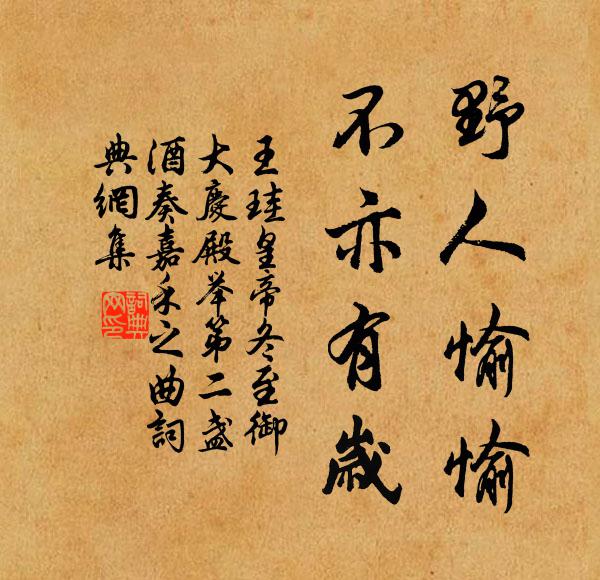 野人愉愉
不亦有歲
王珪皇帝冬至御
大慶殿举第二盏
酒奏嘉禾之曲詞
典網集
詞典
网印